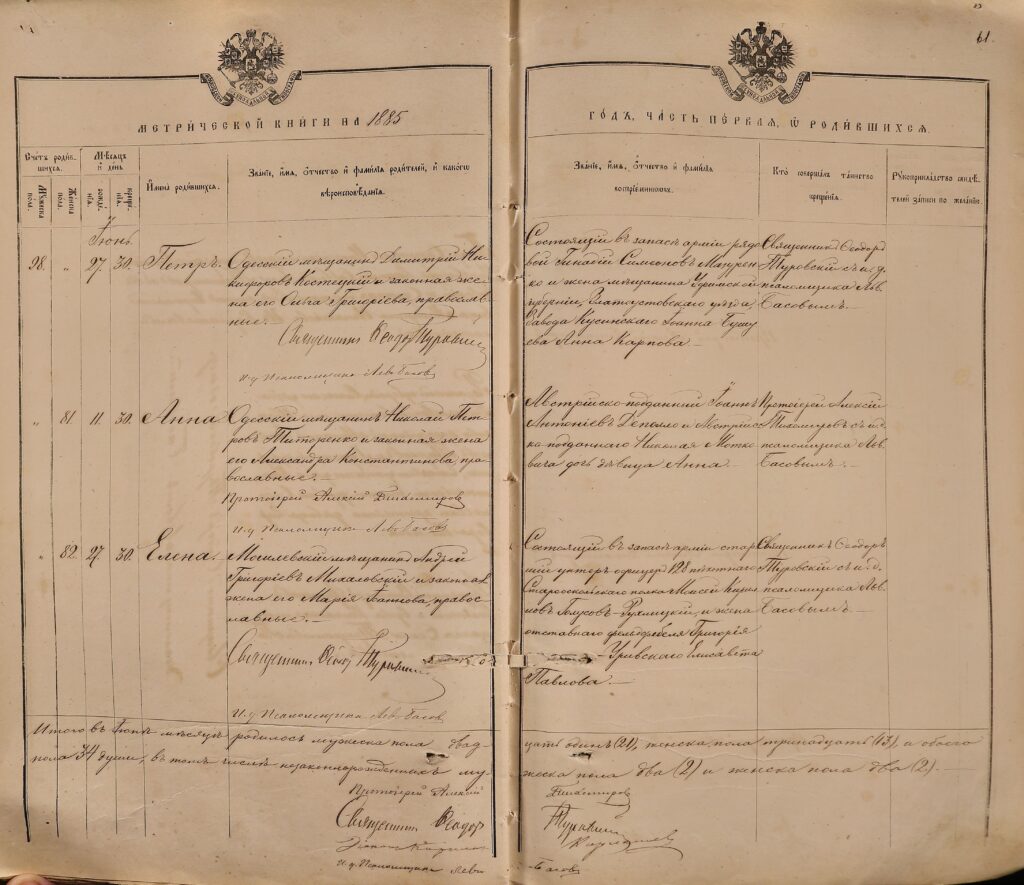 61.
МЕТРИ́ЧЕСКОЙ КНИ́ГИ НА 1885
ГО́ДЪ, ЧА́СТЬ ПЕ́РВАЯ, Ѡ РОДИ́ВШИХСЯ.
Сче́тъ роди́вшихся.
Мѣ́сяцъ и день
Имена̀ роди́вшихся.
Зва́нїе, и́мя, о́тчество и фами́лїя роди́телей, и како́гѡ
вѣроисповѣ́данїя.
Зва́нїе, и́мя, о́тчество и фами́лїя
воспрїе́мникѡвъ.
Кто̀ соверша́лъ та́инство
креще́нїя.
Рꙋкоприкла́дство свидѣ́-
телей за́писи по жела́нїю.
Мꙋ́жеска пола.
Же́нска пола.
рожде́нїя.
креще́нїя.
Іюнь.
28. „ 27. 30. Петръ.
Одесскій мѣщанинъ Димитрій Ни-
кифоровъ Костецкій и законная же-
на его Ольга Григоріева, православ-
ные.
Священникъ Ѳеодоръ Туровскій
И. д. Псаломщика Левъ Басов
Состоящій въ запасѣ арміи рядо-
вой Генадій Симеоновъ Мазурен-
ко и жена мѣщанина Уфимской
губерніи, Златоустовскаго уѣзда,
завода Кусинскаго Іоанна Бушу
ева Анна Карпова.
Священникъ Ѳеодоръ
Туровскій съ и. д.
псаломщика Льв.
Басовымъ.
„ 81. 11. 30. Анна
Одесскій мѣщанинъ Николай Пет-
ровъ Титоренко и законная жена
его Александра Константинова, пра-
вославные.
Протоіерей Алексій Тихомировъ
И. д. Псаломщика Левъ Басов
Австрійско-подданный Іоаннъ
Антоніевъ Деполло и Австрійс-
ко-подданнаго Николая Метко
вича дочь дѣвица Анна.
Протоіерей Алексій
Тихомировъ съ и. д.
псаломщика Ль-
Басовымъ.
„ 82. 27. 30. Елена.
Могилевскій мѣщанинъ Андрей
Григоріевъ Михаловскій и законная
жена его Марія Іоаннова, правос-
лавные.
Священникъ Ѳеодоръ Туровскій
И. д. Псаломщика Левъ Басов
Состоящій въ запасѣ арміи стар-
шій унтеръ офицеръ 128 пѣхотнаго
Старооскольскаго полка Моисей Кирил
ловъ и жена
отставнаго фельдфебеля Григорія
Уривскаго Елисавета
Павлова.
Священникъ Ѳеодоръ
Туровскій съ и. д.
псаломщика Льв.
Басовымъ.
Итого въ Іюнѣ мѣсяцѣ родилось мужеска пола двад-
цать одинъ (21), женска пола тринадцать (13), а обоего
пола 34 души, въ томъ числѣ незаконнорожденныхъ му-
жеска пола два (2) и женска пола два (2).
Протоіерей Алексій Тихомировъ
Священникъ Ѳеодоръ Туровскій
И. д. Псаломщика Левъ Басов